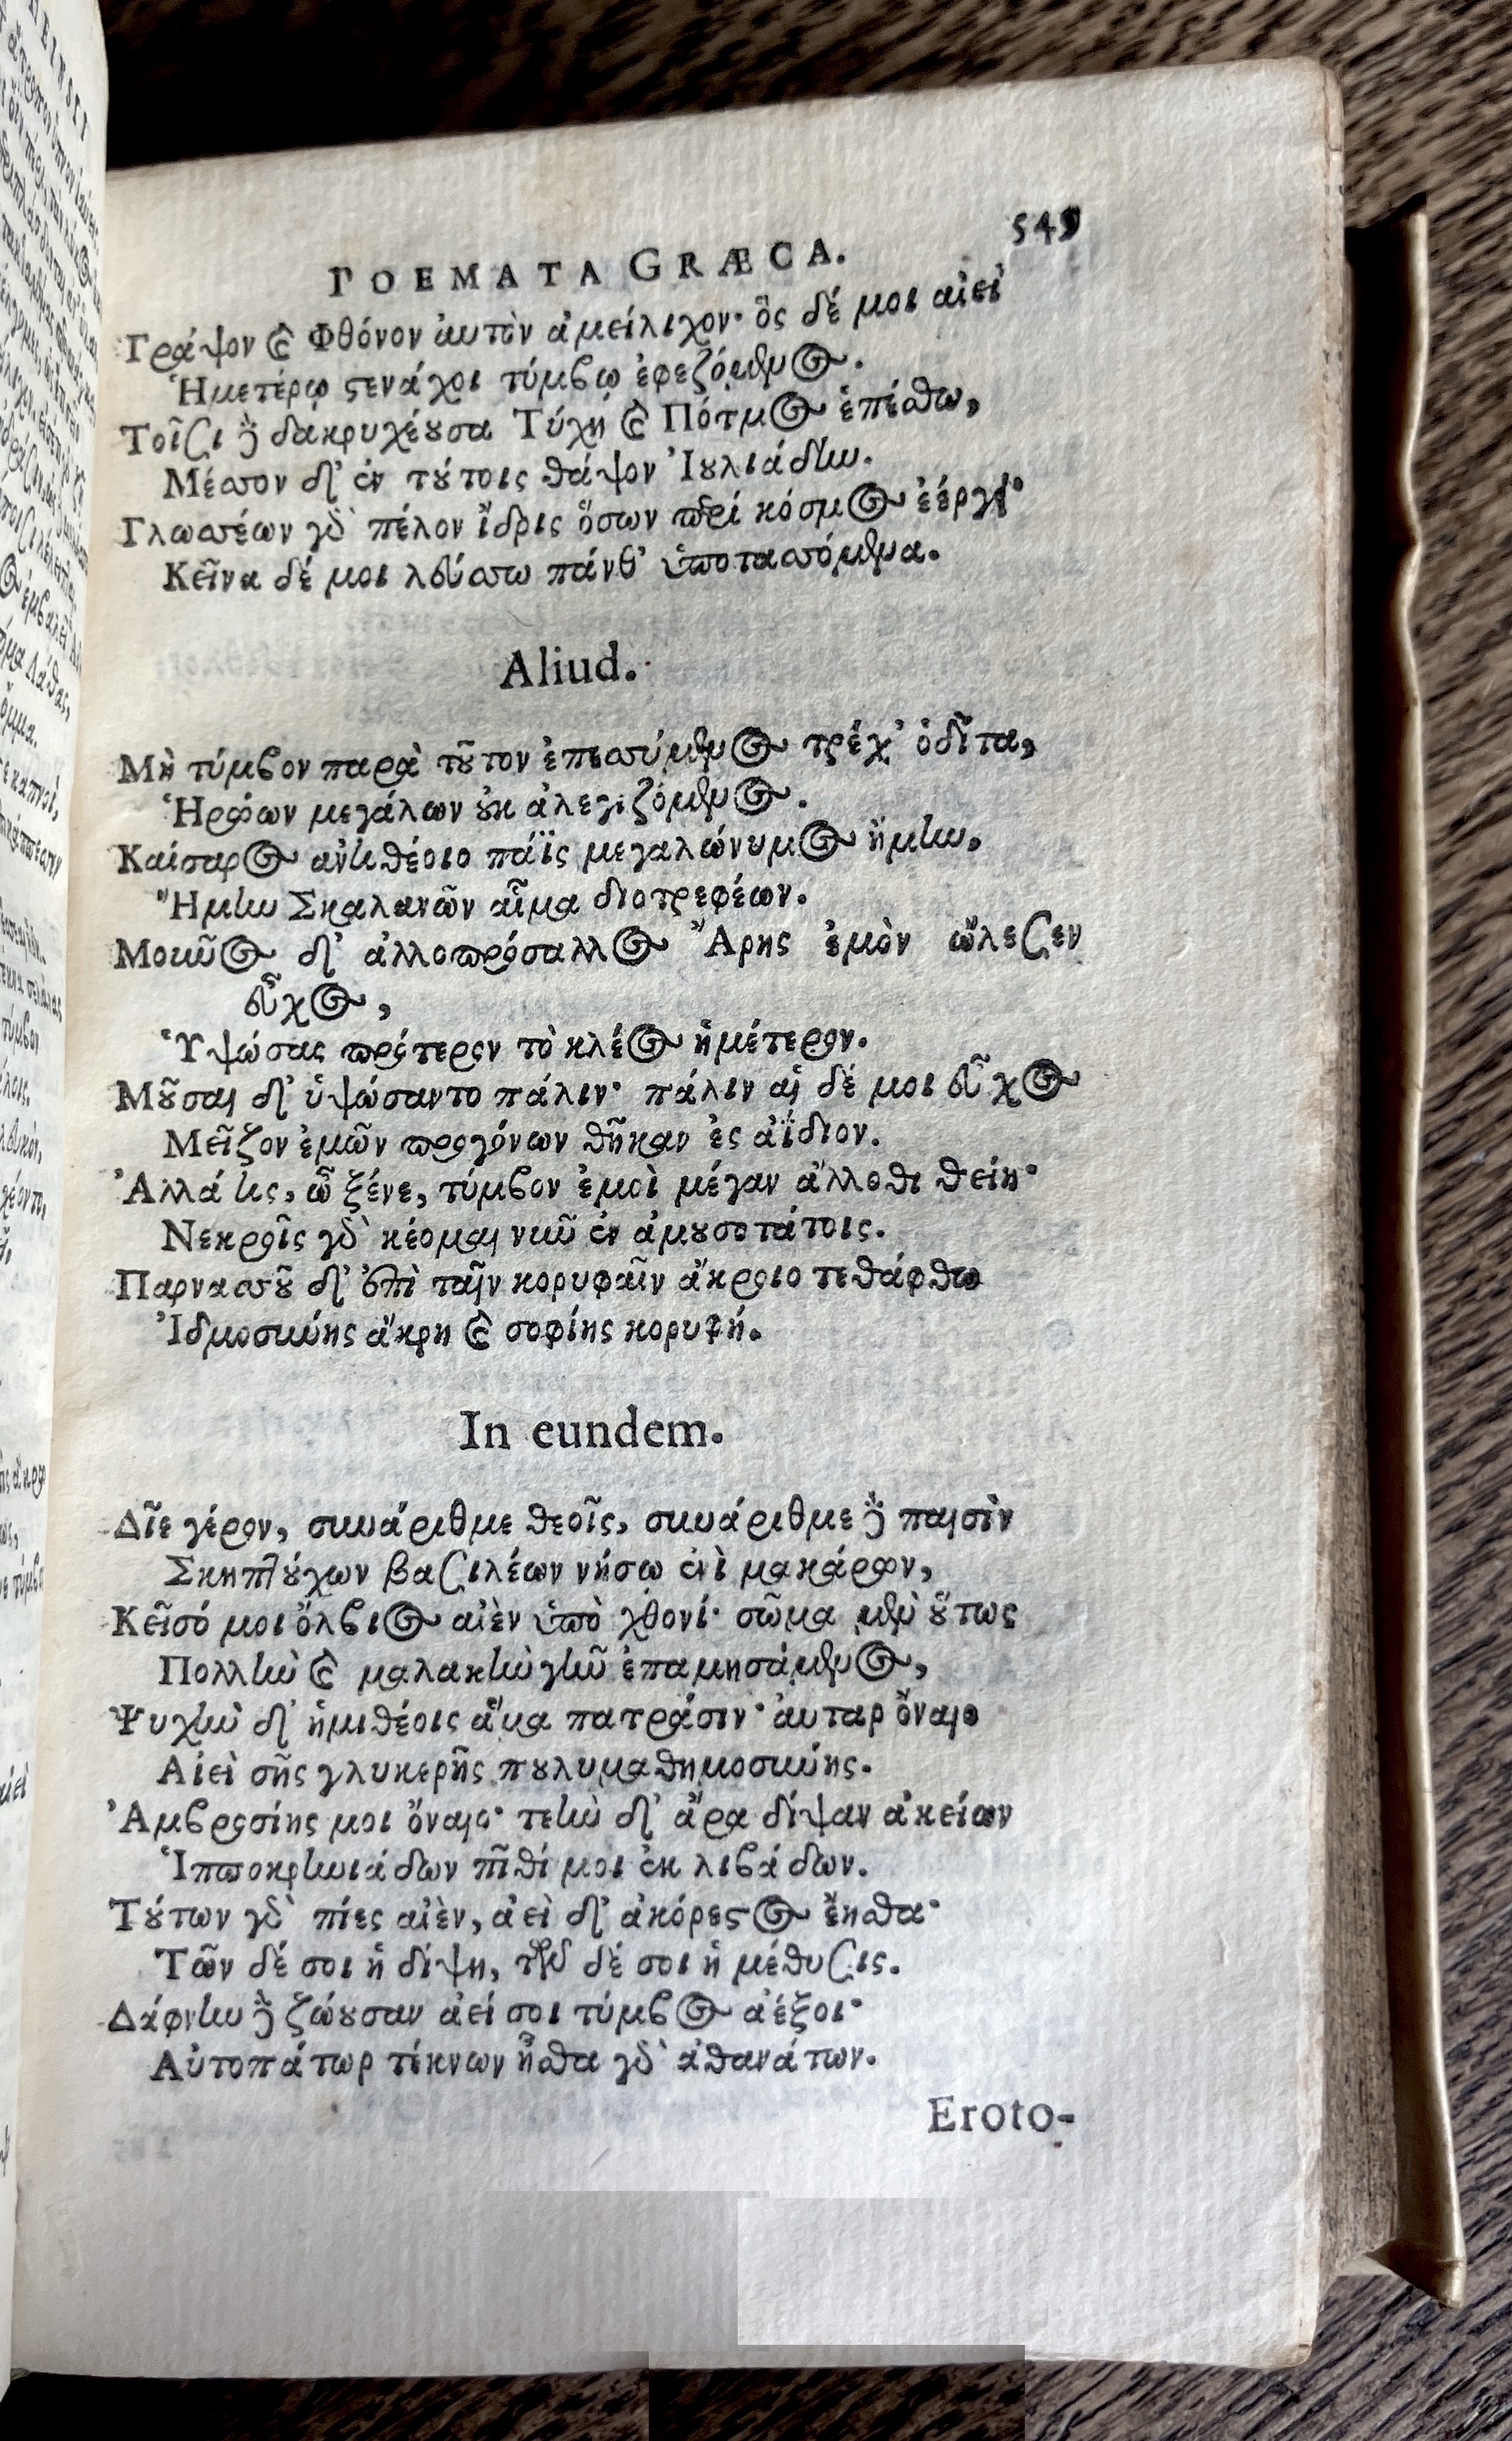 549
POEMATA GRÆCA.
Γράψον καὶ Φθόνον ἀυτὸν ἀμείλιχον· ὃς δέ μοι αἰεὶ
Ἡμετέρῳ στενάχοι τύμβω ἐφεζόμενος.
Τοῖσι δὲ δακρυχέουσα Τύχη καὶ Πότμος ἐπέσθω,
Μέσσον δ' ἐν τούτοις θάψον Ἰουλιάδην.
Γλωσσέων γὰρ πέλον ἴδρις ὅσων περὶ κόσμος ἐέργει·
Κεῖνα δέ μοι λεύσσω πάνθ' ὑποτασσόμενα.
Aliud.
Μὴ τύμβον παρὰ τοῦτον ἐπεσσύμενος τρέχ' ὁδῖτα,
Ἡρώων μεγάλων οὐκ ἀλεγιζόμενος.
Καίσαρος ἀντιθέοιο πάϊς μεγαλώνυμος ἤμην.
Ἤμην Σκαλανῶν αἷμα διοτρεφέων.
Μοῦνος δ' ἀλλοπρόσαλλος Ἄρης ἐμὸν ὤλεσεν
εὖχος,
Ὑψώσας πρότερον τὸ κλέος ἡμέτερον.
Μοῦσαι δ' ὑψώσαντο πάλιν· πάλιν αἱ δέ μοι εὖχος
Μεῖζον ἐμῶν προγόνων θῆκαν ἐς ἀΐδιον.
Ἀλλά τις, ὦ ξένε, τύμβον ἐμοὶ μέγαν ἄλλοθι θείη·
Νεκροῖς γὰρ κέομαι νῦν ἐν ἀμουσοτάτοις.
Παρνασσοῦ δ' ἐπὶ ταῖν κορυφαῖν ἄκροιο τεθάφθω
Ἰδμοσύνης ἄκρη καὶ σοφίης κορυφή.
In eundem.
Δῖε γέρον, συνάριθμε θεοῖς, συνάριθμε δὲ παισὶν
Σκηπτούχων βασιλέων νήσω ἐνὶ μακάρων,
Κεῖσό μοι ὄλβιος αἰὲν ὑπὸ χθονί· σῶμα μὲν οὕτως
Πολλὴν καὶ μαλακὴν γῆν ἐπαμησάμενος,
Ψυχὴν δ' ἡμιθέοις ἅμα πατράσιν· ἀυταρ ὄναιο
Αἰεὶ σῆς γλυκερῆς πουλυμαθημοσύνης.
Ἀμβροσίης μοι ὄναιο· τεὴν δ' ἄρα δίψαν ἀκείων
Ἱπποκρηνιάδων πῖθί μοι ἐκ λιβάδων.
Τούτων γὰρ πίες αἰὲν, ἀεὶ δ' ἀκόρεστος ἔησθα·
Τῶν δέ σοι ἡ δίψη, τῶν δέ σοι ἡ μέθυσις.
Δάφνην δὲ ζώουσαν ἀεί σοι τύμβος ἀέξοι·
Αὐτοπάτωρ τέκνων ἦσθα γὰρ ἀθανάτων.
Eroto-